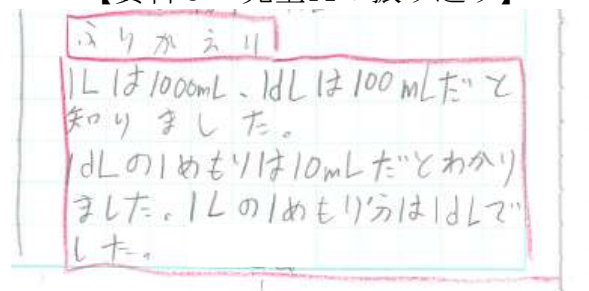 ふりかえり
1Lは1000mL、1dLは100mLだと
知りました。
1dLの1めもりは10mLだとわかり
ました。1Lの1めもり分は1dLで
した。